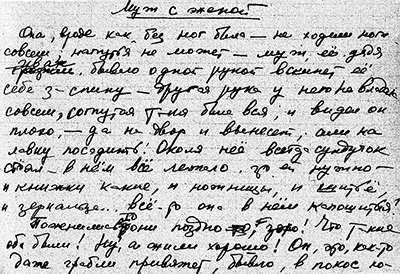 Муж с женой
Она, вроде как, без ног была — не ходили ноги
совсем; нагнутся не может — муж, её, дядя
Иван, бывало одной рукой вскинет её
себе з-спину — другая рука у него не владела
совсем, согнутая т-кая была вся, и видел он
плохо, — да на двор и вынесет, али на
лавку посадить! Околя неё всегда сундучок
стоял — в нём всё лежало, що ей нужно —
и книжки какие, и ножницы, и шитьё,
и зеркальца.. всё-то она в нём копошиться!
Поженились они поздно Что т-кие
оба были! Ну, а жили хорошо! Он, это, как-то
даже грабли привяжет, бывало в покос ко-